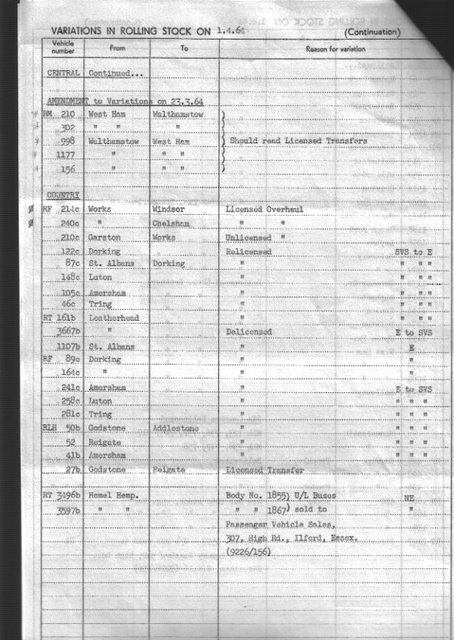 VARIATIONS IN ROLLING STOCK ON 1.4.64 (Continuation)
Vehicle number From To Reason for variation
CENTRAL Continued...
AMENDMENT to Variations on 23.3.64
RM 210 West Ham Walthamstow
302 " " "
998 Walthamstow West Ham Should read Licensed Transfers
1177 " " "
156 " " "
COUNTRY
RF 214c Works Windsor Licensed Overhaul
240c " Chelsham " "
210c Garston Works Unlicensed "
122c Dorking Relicensed SVS to E
87c St. Albans Dorking " " " "
148c Luton " " " "
105c Amersham " " " "
46c Tring " " " "
RT 161b Leatherhead " " " "
3667b " Delicensed E to SVS
1107b St. Albans " E
RF 89c Dorking " "
164c " " "
241c Amersham " E to SVS
258c Luton " " " "
281c Tring " " " "
RLH 50b Godstone Addlestone " " " "
52 Reigate " " " "
41b Amersham " " " "
27b Godstone Reigate Licensed Transfer
RT 3496b Hemel Hemp. Body No. 1855) U/L Buses NE
3597b " " " " 1867) sold to "
Passenger Vehicle Sales,
307, High Rd., Ilford, Essex.
(9226/156)